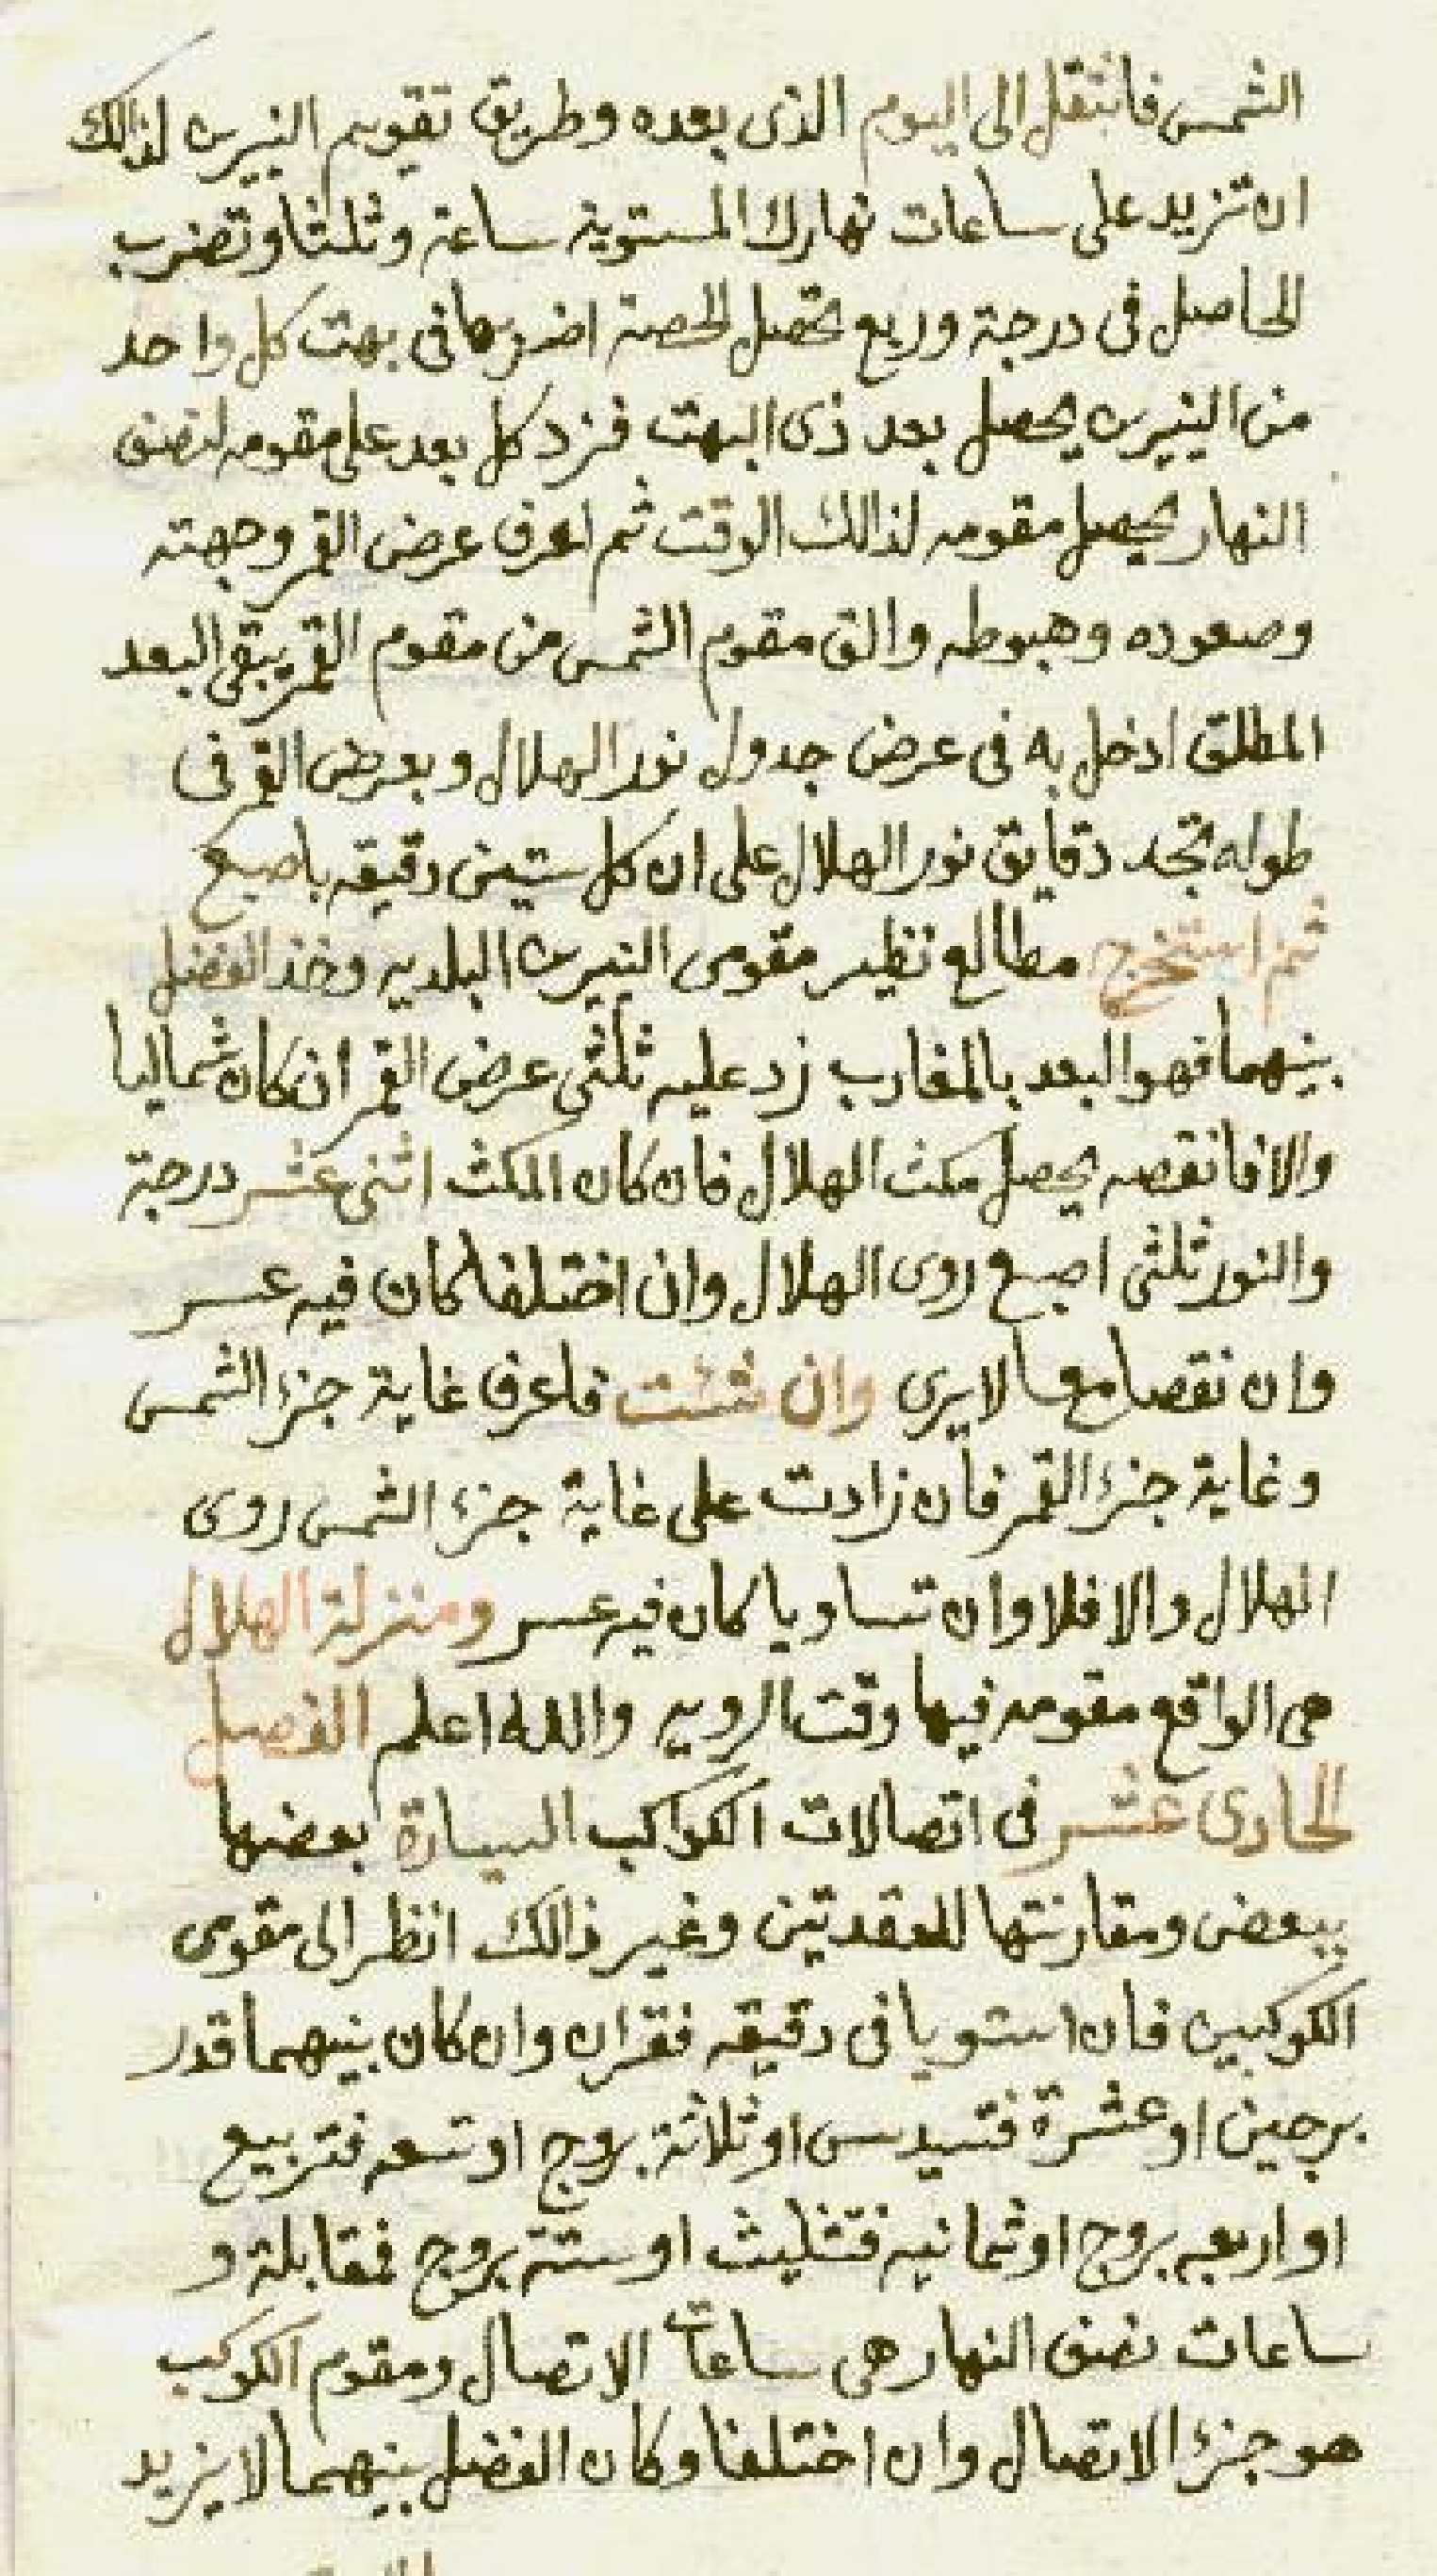 الشمس فانتقل الى اليوم الذى بعده وطريق تقويم النيرين لذالك
ان تزيد على ساعات نهارك المستوية ساعة وثلثا وتضرب
الحاصل فى درجة وربع تحصل الحصة اضربها فى بهت كل واحد
من النيرين يحصل بعد ذى البهت فزد كل بعد على مقومه لنصف
النهار يحصل مقومه لذالك الوقت ثم اعرف عرض القمر وجهته
وصعوده وهبوطه والق مقوم الشمس من مقوم القمر يبقى البعد
المطلق ادخل به فى عرض جدول نور الهلال وبعرض القمر فى
طوله تجد دقايق نور الهلال على ان كل ستين دقيقه باصبع
ثم استخرج مطالع نظير مقومى النيرين البلديه وخذ الفضل
بينهما فهو البعد بالمغارب زد عليه ثلثى عرض القمر ان كان شماليا
والا فانقصه يحصل مكث الهلال فان كان المكث اثنى عشر درجة
والنور ثلثى اصبع روى الهلال وان اختلفا كان فيه عسر
وان نقصا معا لا يرى وان شئت فاعرف غاية جزء الشمس
وغاية جزء القمر فان زادت على غاية جزء الشمس روى
الهلال والا فلا وان تساويا كان فيه عسر ومنزلة الهلال
هى الواقع مقومه فيها وقت الرويه والله اعلم الفصل
الحادى عشر فى اتصالات الكواكب السيارة بعضها
ببعض ومقارنتها للعقدتين وغير ذالك انظر الى مقومى
الكوكبين فان استويا فى دقيقه فقران وان كان بينهما قدر
برجين او عشرة فتسديس او ثلاثة بروج او تسعه فتربيع
او اربعه بروج او ثمانيه فتثليث او ستة بروج فمقابلة و
ساعات نصف النهار هى ساعات الاتصال ومقوم الكوكب
هو جزء الاتصال وان اختلفا وكان الفضل بينهما لا يزيد